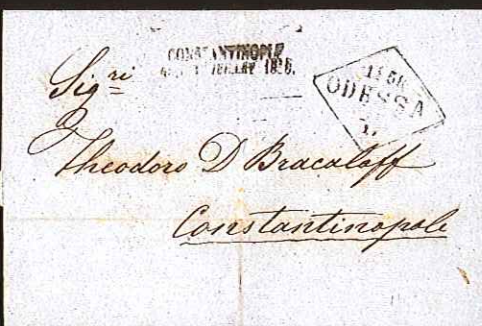 CONSTANTINOPLE
ODESSA
Sigri
Theodoro D Bracaloff
Constantinopole